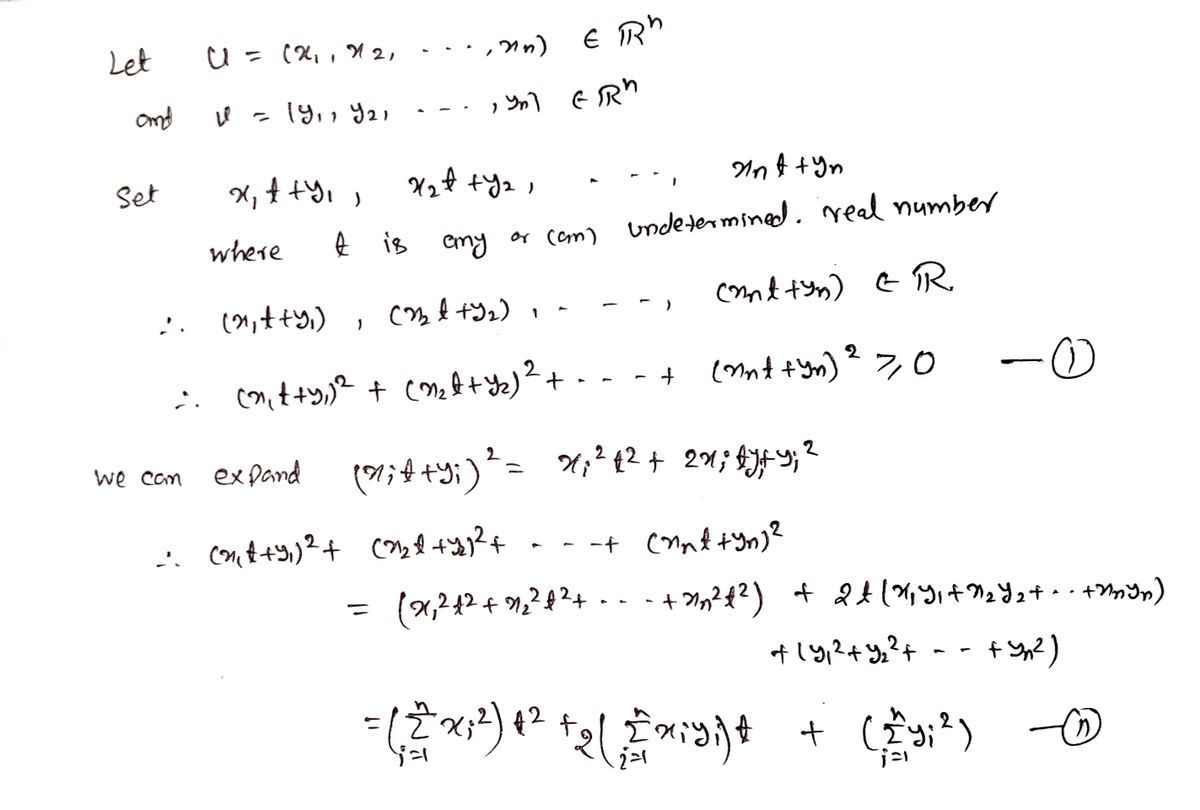 Let U = (x₁, x₂, - - - , xₙ) ∈ ℝⁿ
and v = (y₁, y₂, - - - , yₙ) ∈ ℝⁿ
Set x₁t + y₁, x₂t + y₂, - - - -, xₙt + yₙ
where t is any or (an) undetermined. real number
∴ (x₁t + y₁), (x₂t + y₂), - - - -, (xₙt + yₙ) ∈ ℝ.
∴ (x₁t + y₁)² + (x₂t + y₂)² + - - - + (xₙt + yₙ)² ≥ 0 — ①
we can expand (xᵢt + yᵢ)² = xᵢ²t² + 2xᵢtyᵢ + yᵢ²
∴ (x₁t + y₁)² + (x₂t + y₂)² + - - - + (xₙt + yₙ)²
= (x₁²t² + x₂²t² + - - - + xₙ²t²) + 2t(x₁y₁ + x₂y₂ + - - + xₙyₙ)
+ (y₁² + y₂² + - - + yₙ²)
= (∑ⁿᵢ₌₁ xᵢ²) t² + 2(∑ⁿᵢ₌₁ xᵢyᵢ)t + (∑ⁿᵢ₌₁ yᵢ²) — ⓘⓘ